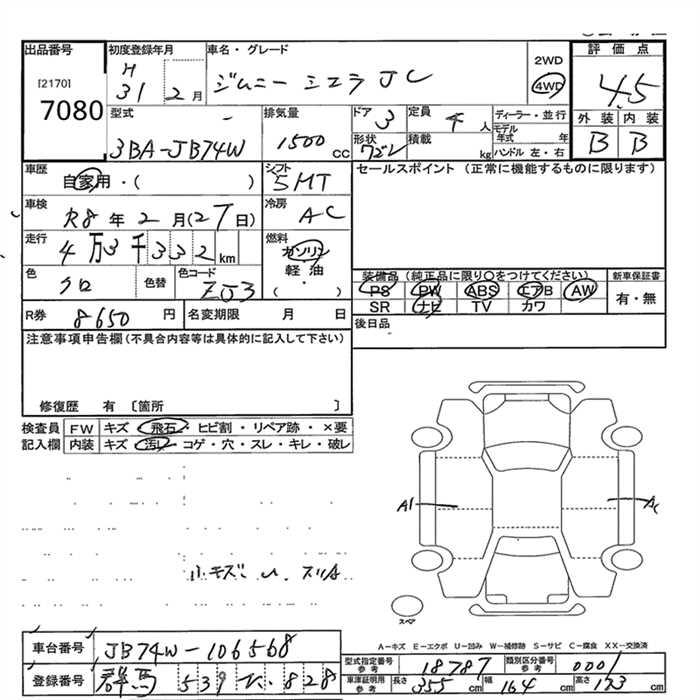 出品番号 初度登録年月 車名・グレード 2WD 評価点
[2170] 7080 H 31 2月 ジムニー シエラ JC 4WD 4.5
型式 排気量 ドア 3 定員 4人 ディーラー・並行 外装 内装
3BA-JB74W 1500cc 形状 ワゴン 積載 kg モデル年式 年 ハンドル 左・右 B B
車歴 自家用・( ) シフト 5MT セールスポイント (正常に機能するものに限ります)
車検 R8年2月(27日) 冷房 AC
走行 4万3千332km 燃料 ガソリン 軽油 ・ ( )
色 クロ 色替 色コード ZJ3 装備品 (純正品に限り○をつけてください) 新車保証書
PS PW ABS エアB AW 有・無
SR ナビ TV カワ
R券 8650円 名変期限 月 日 後日品
注意事項申告欄 (不具合内容等は具体的に記入して下さい)
修復歴 有 〔箇所 〕
検査員 FW キズ・飛石・ヒビ割・リペア跡・×要
記入欄 内装 キズ・汚レ・コゲ・穴・スレ・キレ・破レ
A1
小キズ
スペア
A-キズ E-エクボ U-凹み W-補修跡 S-サビ C-腐食 XX-交換済
車台番号 JB74W-106568 型式指定番号 参考 18787 類別区分番号 参考 0001
登録番号 群馬 539 828 車庫証明用 参考 長さ 355cm 幅 164cm 高さ 173cm